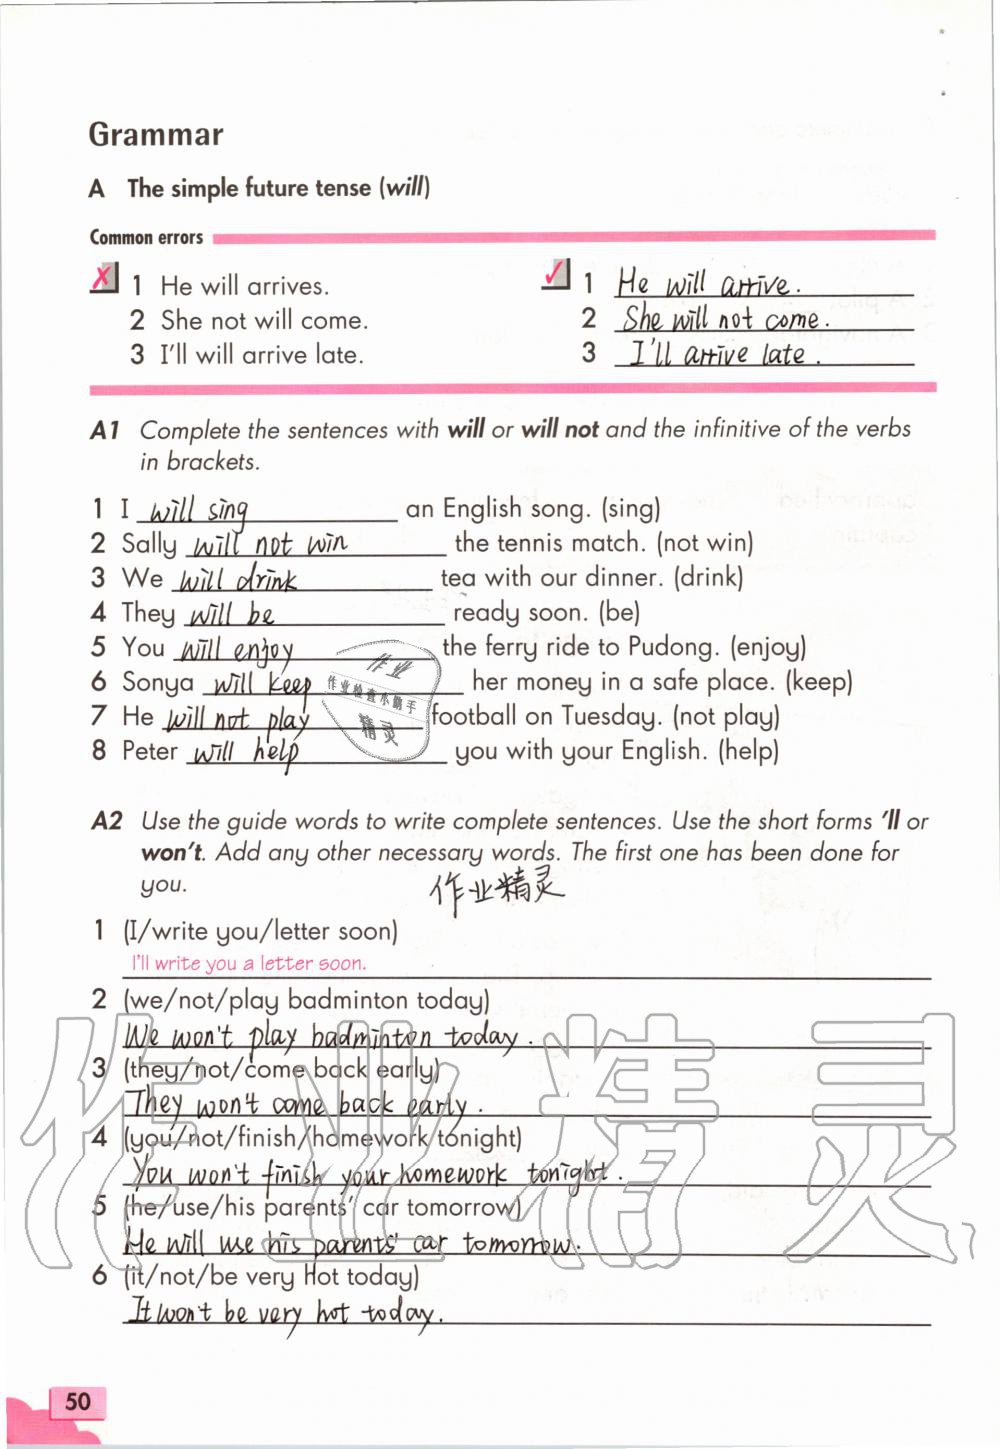 Grammar
A The simple future tense (will)
Common errors
✗ 1 He will arrives.
2 She not will come.
3 I'll will arrive late.
✓ 1 He will arrive.
2 She will not come.
3 I'll arrive late.
A1 Complete the sentences with will or will not and the infinitive of the verbs
in brackets.
1 I will sing an English song. (sing)
2 Sally will not win the tennis match. (not win)
3 We will drink tea with our dinner. (drink)
4 They will be ready soon. (be)
5 You will enjoy the ferry ride to Pudong. (enjoy)
6 Sonya will keep her money in a safe place. (keep)
7 He will not play football on Tuesday. (not play)
8 Peter will help you with your English. (help)
作业
作业检查小助手
精灵
A2 Use the guide words to write complete sentences. Use the short forms 'll or
won't. Add any other necessary words. The first one has been done for
you.
作业精灵
1 (I/write you/letter soon)
I'll write you a letter soon.
2 (we/not/play badminton today)
We won't play badminton today.
3 (they/not/come back early)
They won't come back early.
4 (you/not/finish/homework tonight)
You won't finish your homework tonight.
5 (he/use/his parents' car tomorrow)
He will use his parents' car tomorrow.
6 (it/not/be very hot today)
It won't be very hot today.
作业精灵
50